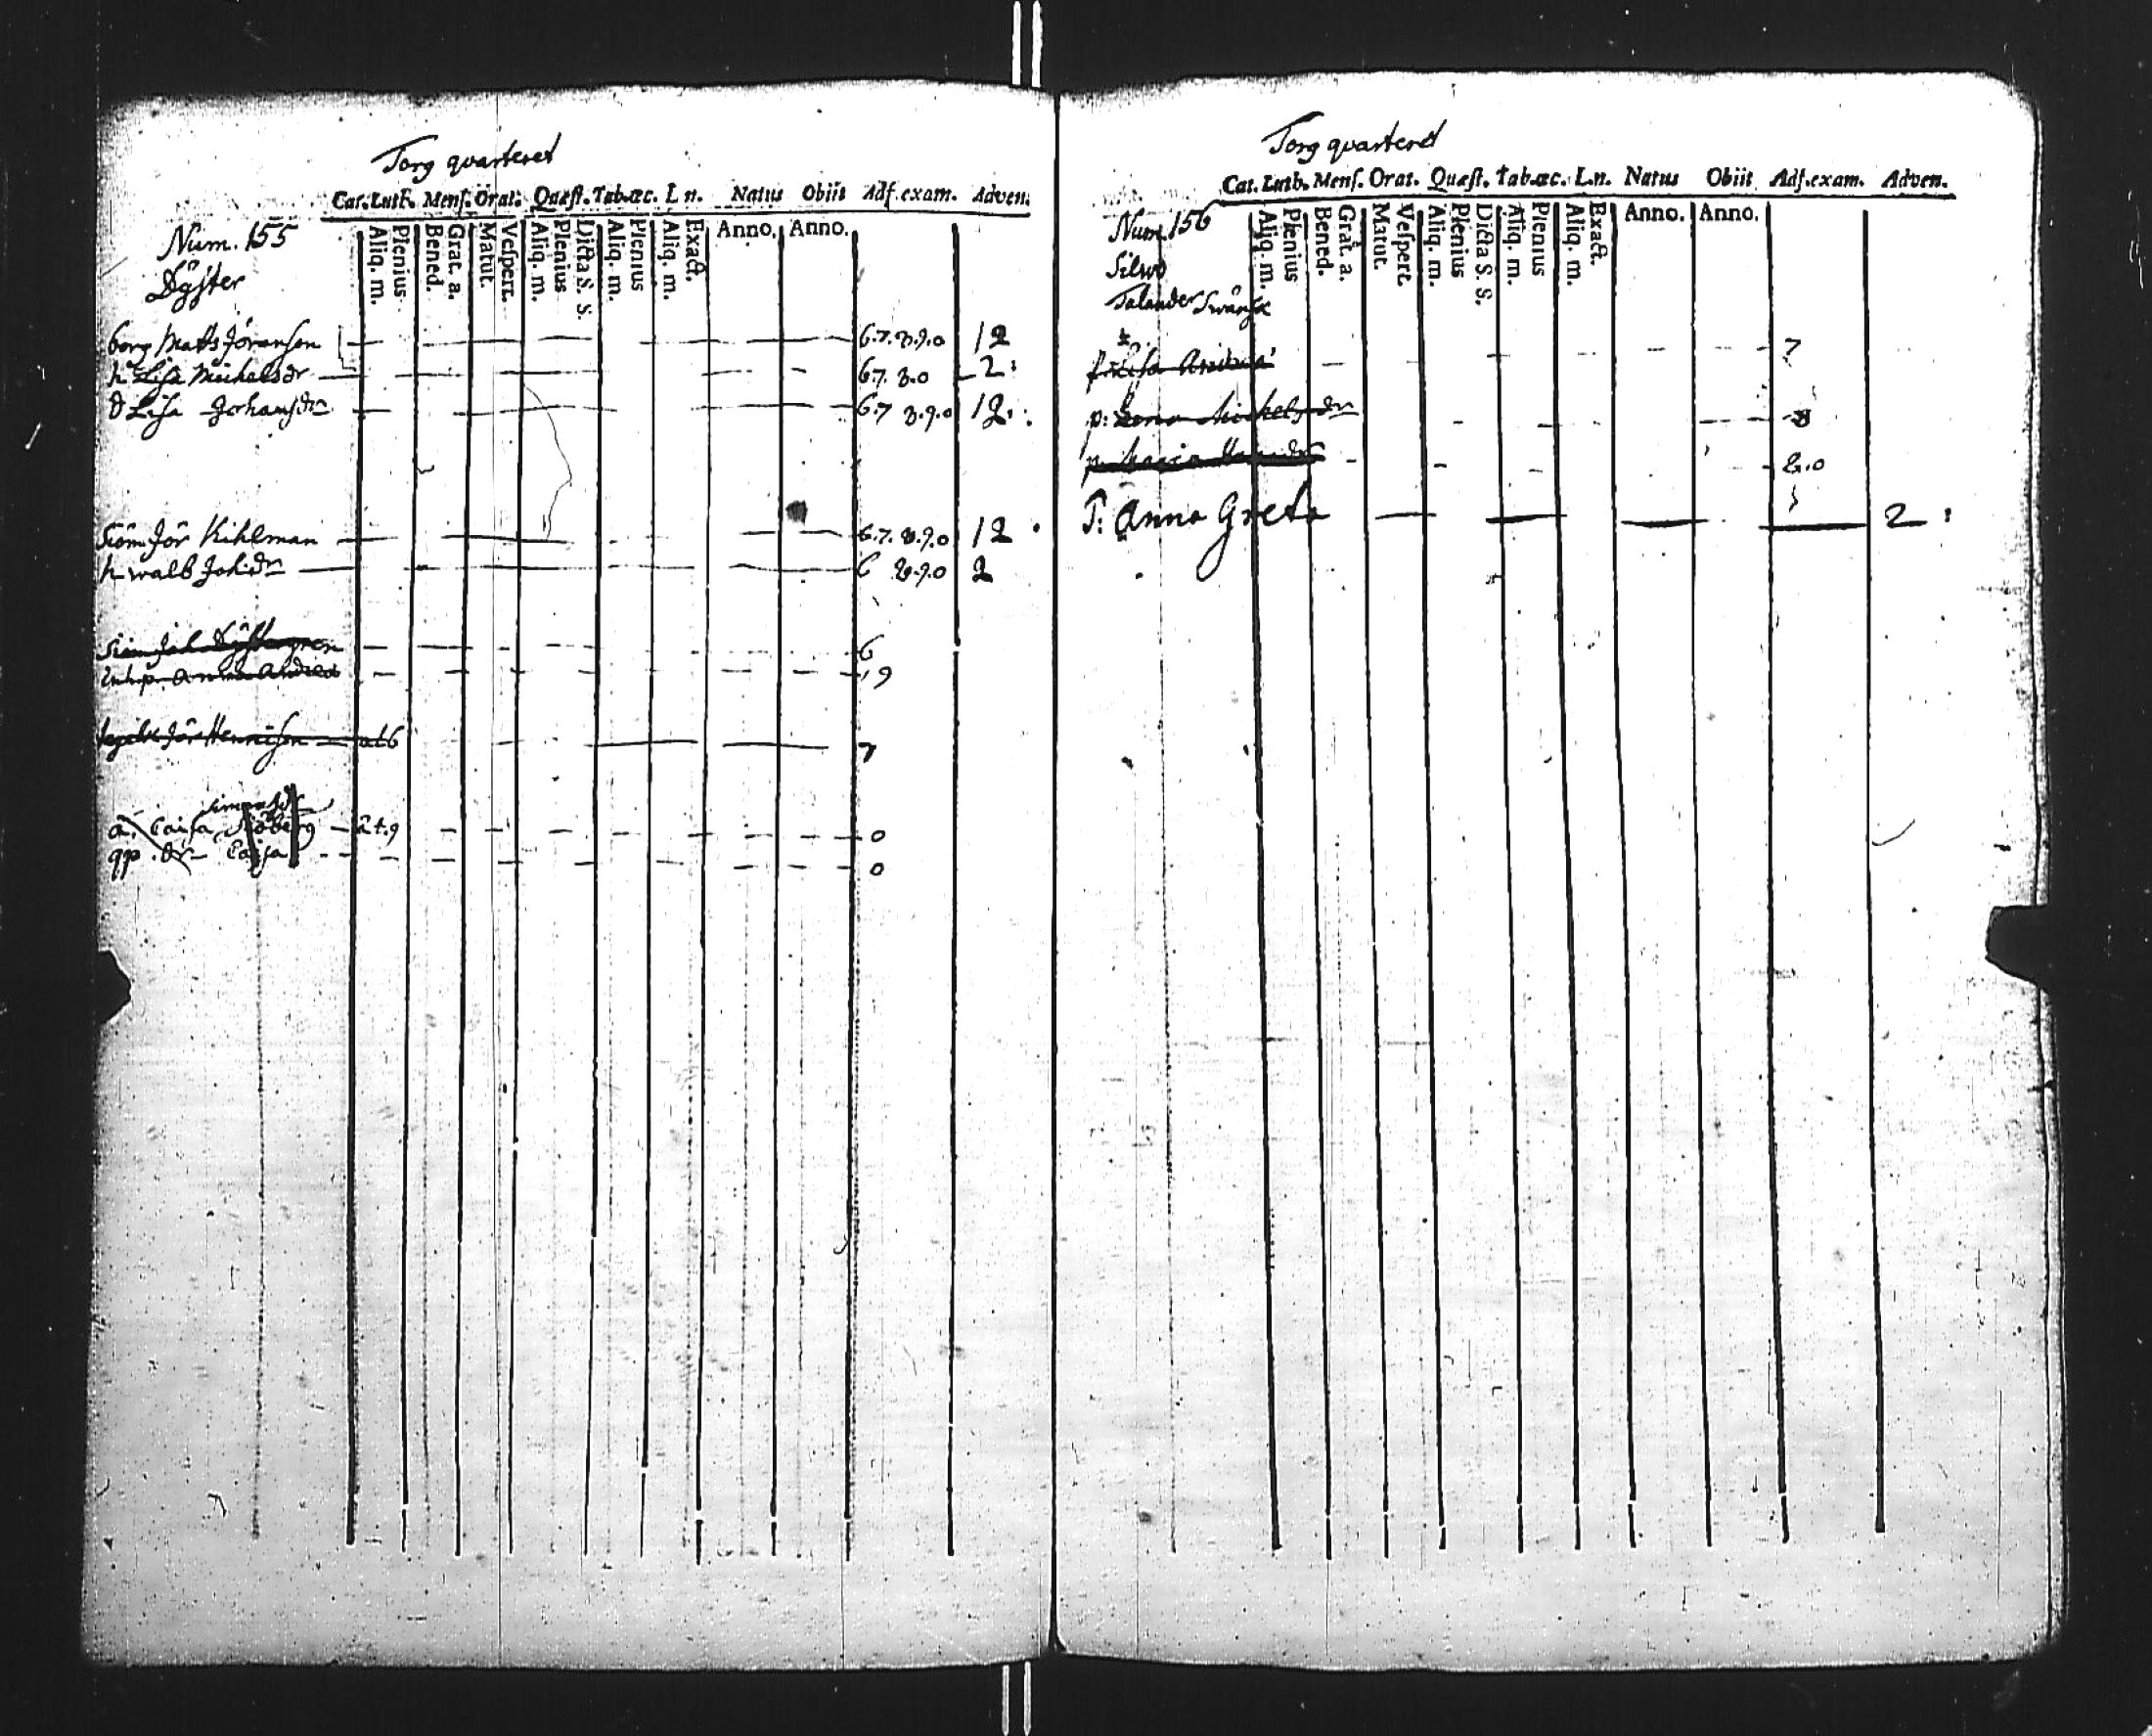 Torg quarteret
Cat. Luth. Mens. Orat. Quæst. Tab. æc. L n. Natus Obiit Adf. exam. Adven.
Num. 155
Aliq. m. Plenius Bened. Grat. a. Matut. Vespert. Aliq. m. Plenius Dicta S. S. Aliq. m. Plenius Aliq. m. Exact. Anno. Anno.
Dÿster
borg Matts Jöranson 6.7.8.9.0 12
h Lisa Michelsdr 6.7. 8.0 2:
d Lisa Johansdr 6.7 8.9.0 12.
Siöm Jör Kihlman 6.7.8.9.0 12
h walb Joh:dr 6 8.9.0 2
6
inhp. Anna 19
Jör Hennisson 7
Simonsdr
a. Caisa Siöberg åt.9 0
qp. dr Caisa 0
Torg quarteret
Cat. Luth. Mens. Orat. Quæst. Tab. æc. L.n. Natus Obiit Adf. exam. Adven.
Num. 156
Aliq. m. Plenius Bened. Grat. a. Matut. Vespert. Aliq. m. Plenius Dicta S. S. Aliq. m. Plenius Aliq. m. Exact. Anno. Anno.
Silwo
Talander
7
p: Lena Michelsdr 8
p. Maria 8.0
P: Anna Greta 2: